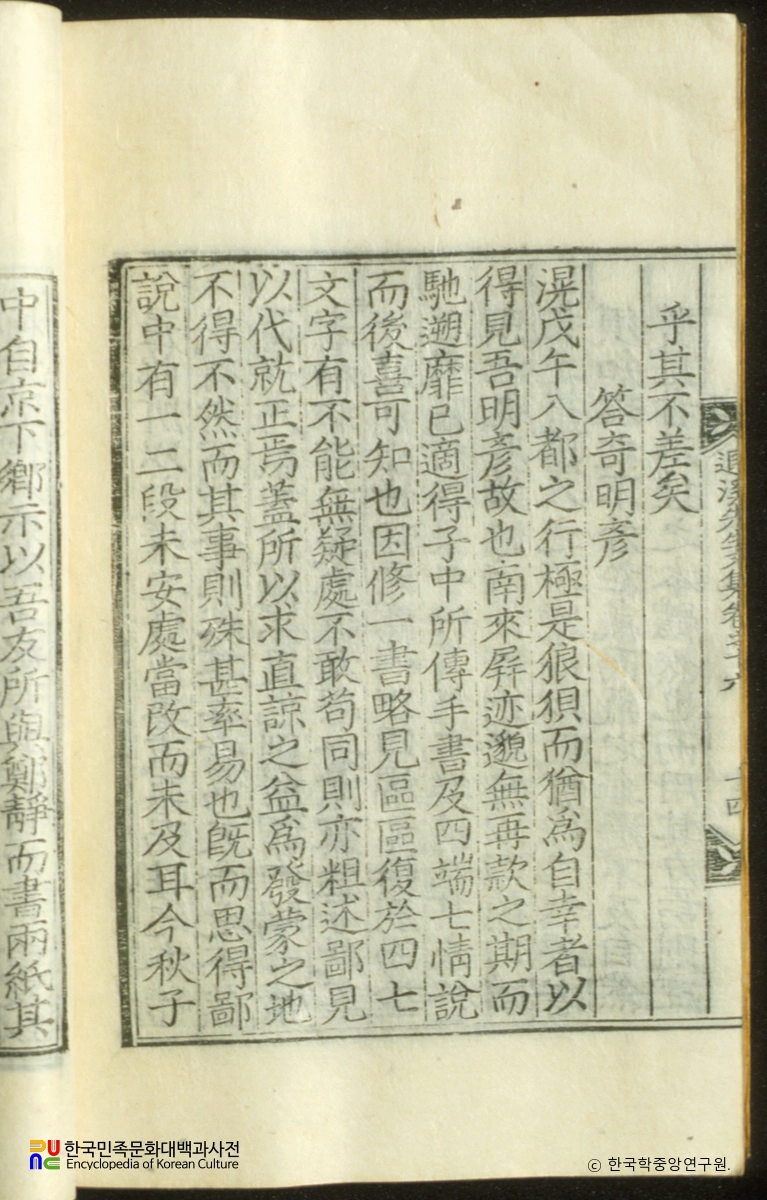 退溪先生文集卷之十六
十四
乎其不差矣
答奇明彦
滉戊午入都之行極是狼狽而猶爲自幸者以
得見吾明彦故也南來屛迹邈無再款之期而
馳遡靡已適得子中所傳手書及四端七情說
而後喜可知也因修一書略見區區復於四七
文字有不能無疑處不敢苟同則亦粗述鄙見
以代就正焉蓋所以求直諒之益爲發蒙之地
不得不然而其事則殊甚率易也旣而思得鄙
說中有一二段未安處當改而未及耳今秋子
中自京下鄉示以吾友所與鄭靜而書兩紙其
한국민족문화대백과사전
Encyclopedia of Korean Culture
© 한국학중앙연구원.